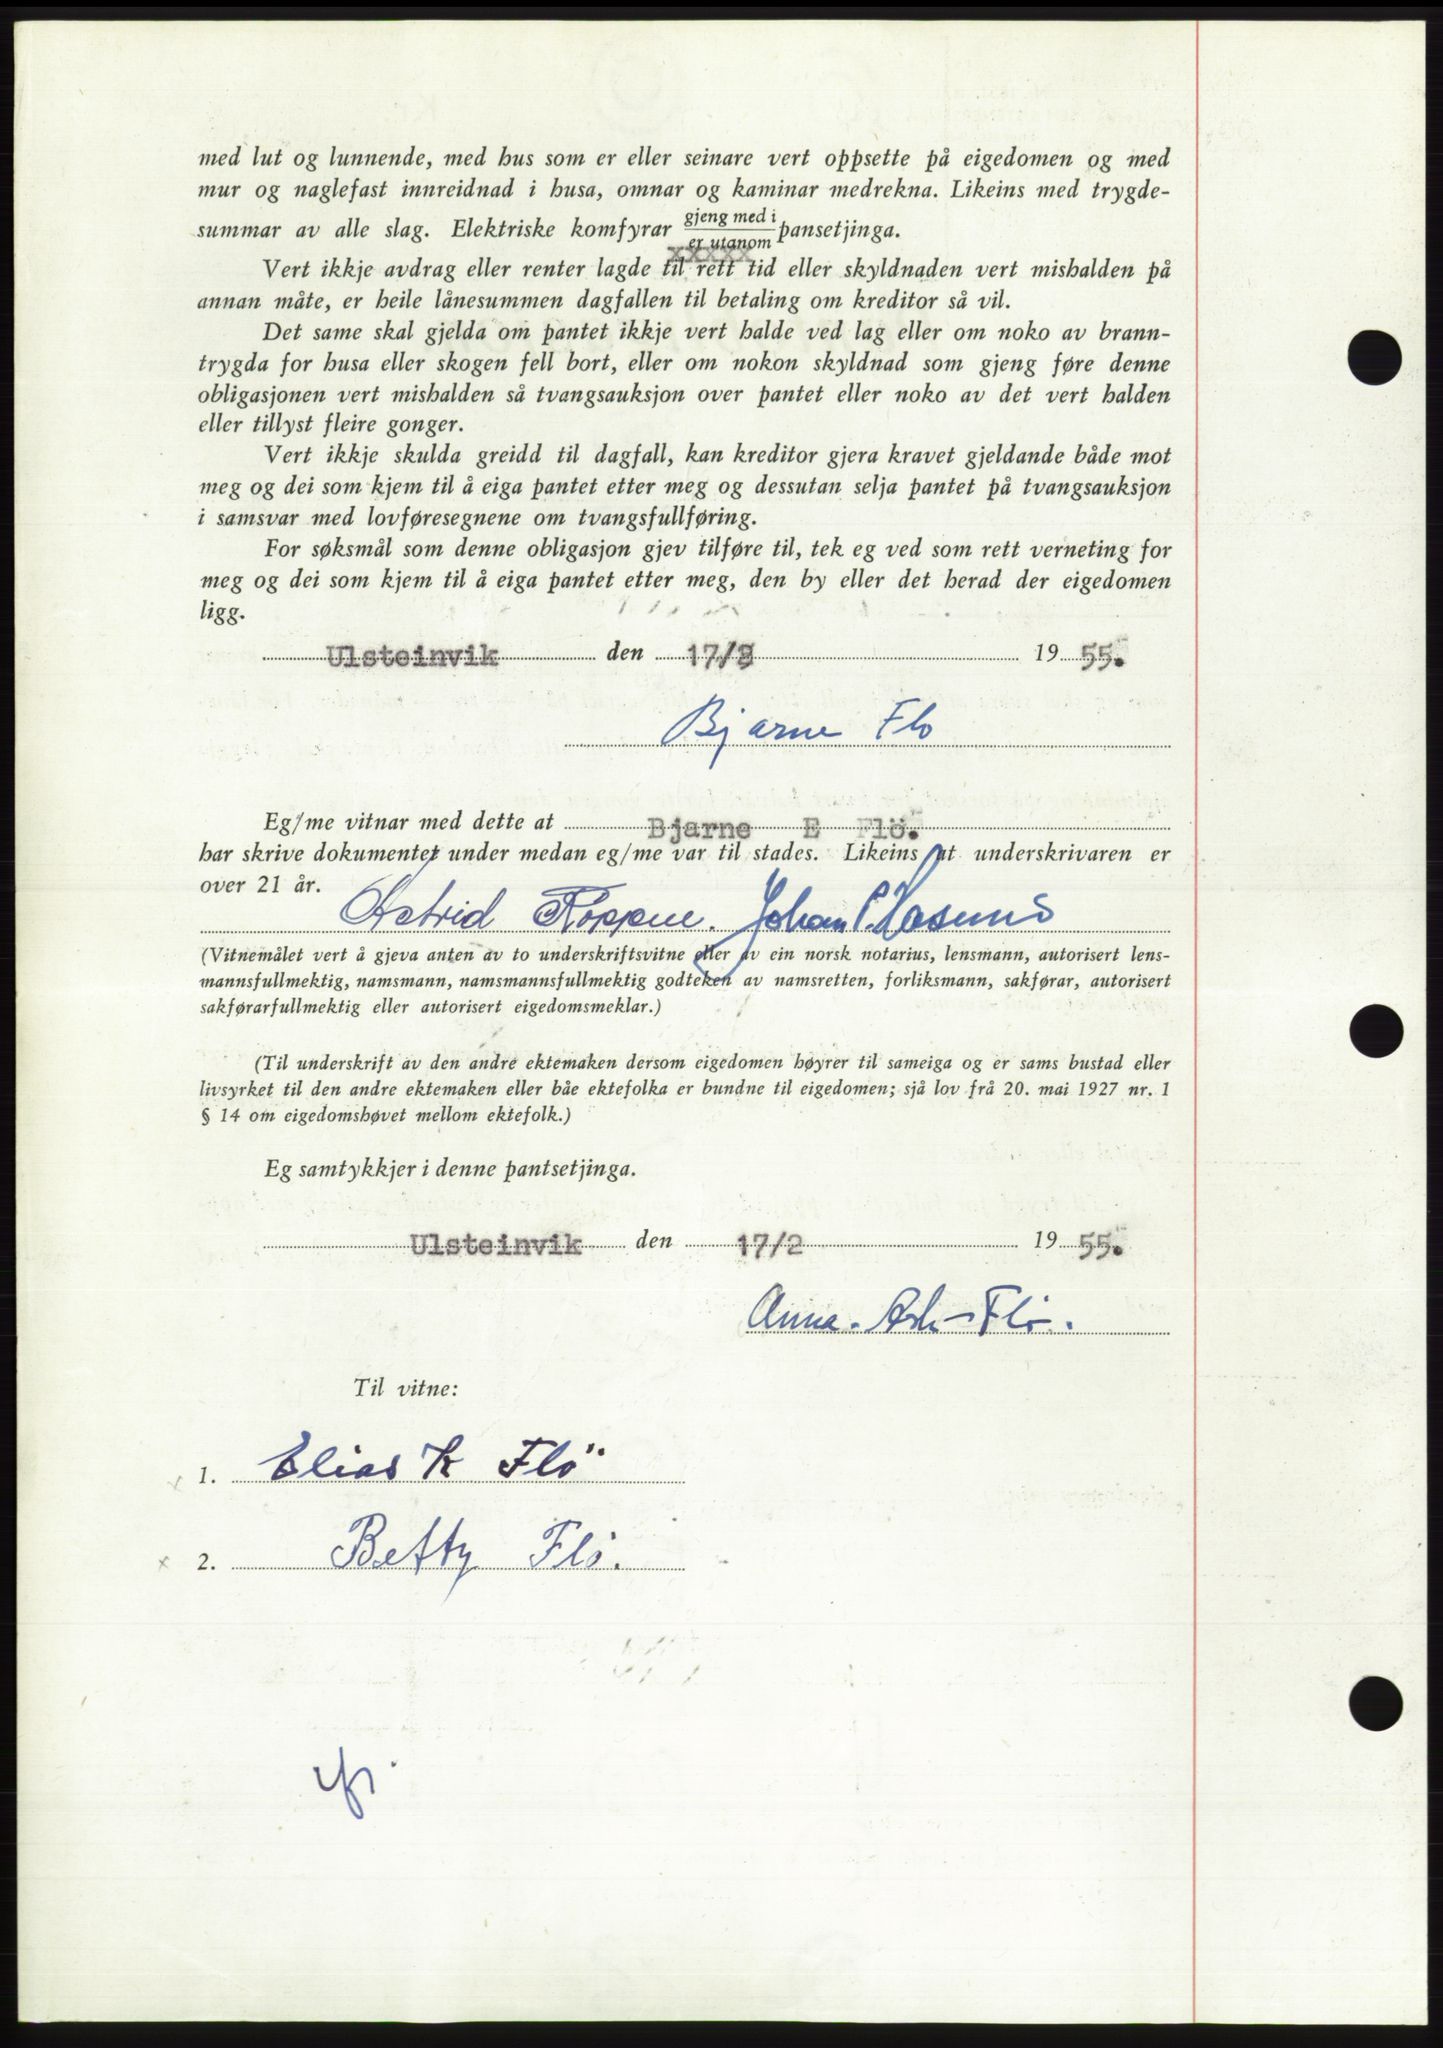 med lut og lunnende, med hus som er eller seinare vert oppsette på eigedomen og med
mur og naglefast innreidnad i husa, omnar og kaminar medrekna. Likeins med trygde-
summar av alle slag. Elektriske komfyrar gjeng med i
er utanom pansetjinga.
xxxxx
Vert ikkje avdrag eller renter lagde til rett tid eller skyldnaden vert mishalden på
annan måte, er heile lånesummen dagfallen til betaling om kreditor så vil.
Det same skal gjelda om pantet ikkje vert halde ved lag eller om noko av brann-
trygda for husa eller skogen fell bort, eller om nokon skyldnad som gjeng føre denne
obligasjonen vert mishalden så tvangsauksjon over pantet eller noko av det vert halden
eller tillyst fleire gonger.
Vert ikkje skulda greidd til dagfall, kan kreditor gjera kravet gjeldande både mot
meg og dei som kjem til å eiga pantet etter meg og dessutan selja pantet på tvangsauksjon
i samsvar med lovføresegnene om tvangsfullføring.
For søksmål som denne obligasjon gjev tilføre til, tek eg ved som rett verneting for
meg og dei som kjem til å eiga pantet etter meg, den by eller det herad der eigedomen
ligg.
Ulsteinvik den 17/2 19 55.
Bjarne Flo
Eg/me vitnar med dette at Bjarne E Flö.
har skrive dokumentet under medan eg/me var til stades. Likeins at underskrivaren er
over 21 år.
Astrid Roppen. Johan P. Hasund
(Vitnemålet vert å gjeva anten av to underskriftsvitne eller av ein norsk notarius, lensmann, autorisert lens-
mannsfullmektig, namsmann, namsmannsfullmektig godteken av namsretten, forliksmann, sakførar, autorisert
sakførarfullmektig eller autorisert eigedomsmeklar.)
(Til underskrift av den andre ektemaken dersom eigedomen høyrer til sameiga og er sams bustad eller
livsyrket til den andre ektemaken eller båe ektefolka er bundne til eigedomen; sjå lov frå 20. mai 1927 nr. 1
§ 14 om eigedomshøvet mellom ektefolk.)
Eg samtykkjer i denne pantsetjinga.
Ulsteinvik den 17/2 19 55.
Anna Flö.
Til vitne:
1. Elias K Flö
x 2. Betty Flö.